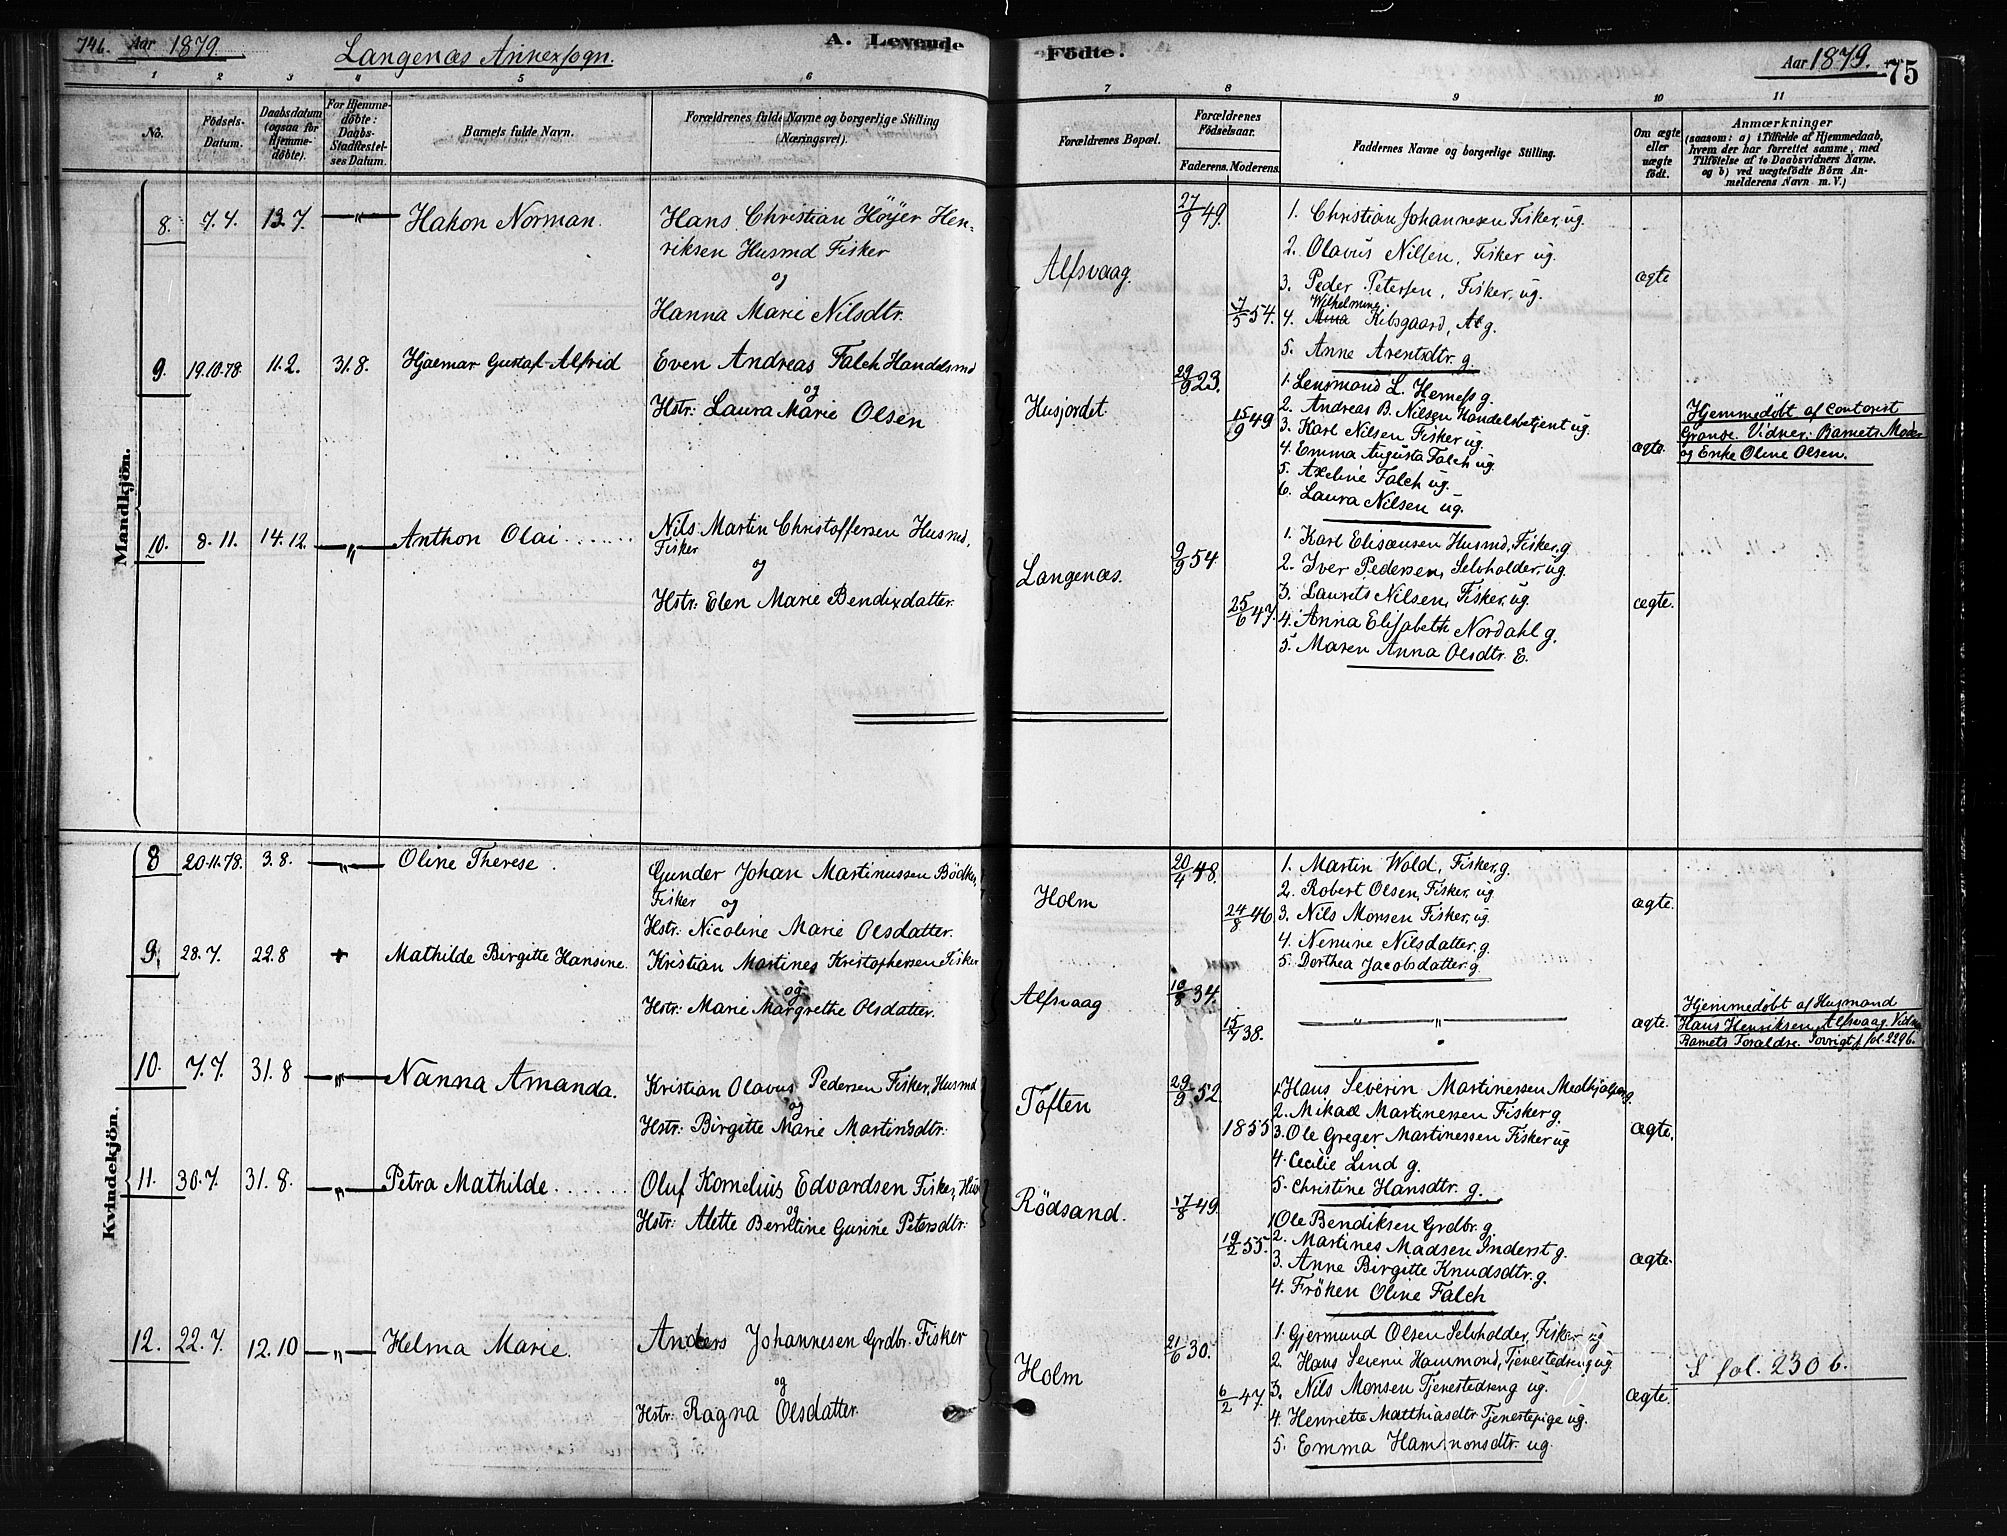 74b. Aar 1879. Langenæs Annexsogn. A. Levende
Födte. Aar 1879. 75
1 2 3 " 5 6
7 8 9 10 11
No.
Födsels-
Datum.
Daabsdatum
(ogsaa for
Hjemme-
döbte).
For Hjemme-
döbte:
Daabs-
Stadfæstel-
ses Datum.
Barnets fulde Navn.
Forældrenes fulde Navne og borgerlige Stilling
(Næringsvei).
Forældrenes Bopæl.
Forældrenes
Födselsaar.
Faderens. Moderens.
Faddernes Navne og borgerlige Stilling.
Om ægte
eller
uægte
födt.
Anmærkninger
(saasom: a) i Tilfælde af Hjemmedaab,
hvem der har forrettet samme, med
Tilföielse af to Daabsvidners Navne.
og b) ved uægtefödte Börn An-
melderens Navn m. V.)
Mandkjön.
8. 7.4. 13.7. —"— Hakon Norman.
Hans Christian Höyer Hen-
riksen Husmd Fisker
og
Hanna Marie Nilsdtr.
Alfsvaag.
27/9 49.
7/5 54.
1. Christian Johannesen Fisker, ug.
2. Olavus Nilsen, Fisker ug.
3. Peder Petersen, Fisker, ug.
Wilhelmine
4. Mina Kibsgaard, g.
5. Anne Arentsdtr. g.
ægte
9. 19.10.78. 11.2. 31.8. Hjalmar Gustaf Alfrid
Even Andreas Falch Handelsmd
og
Hstr: Laura Marie Olsen
Husjordet.
29/9 23.
15/9 49
1. Lensmand L. Hemess g.
2. Andreas B. Nilsen Handelsbetjent ug.
3. Karl Nilsen Fisker ug.
4. Emma Augusta Falch ug.
5. Axeline Falch ug.
6. Laura Nilsen ug.
ægte.
Hjemmedøbt af Contorist
Grønse. Vidner: Barnets Moder
og Enke Oline Olsen.
10. 8.11. 14.12. —"— Anthon Olai
Nils Martin Christoffersen Husmd,
Fisker
og
Hstr: Elen Marie Bendixdatter.
Langenæs.
9/9 54.
25/6 47.
1. Karl Elisæusen Husmd, Fisker, g
2. Iver Pedersen, Selvholder, ug.
3. Laurits Nilsen, Fisker, ug.
4. Anna Elisabeth Nordahl g.
5. Maren Anna Olsdtr. E.
ægte.
Kvindekjön.
8 20.11.78. 3.8. —"— Oline Therese.
Gunder Johan Martinussen Bödker,
Fisker og
Hstr: Nicoline Marie Olsdatter.
Holm
20/4 48.
24/8 46
1. Martin Wold, Fisker, g.
2. Robert Olsen, Fisker, ug
3. Nils Monsen Fisker, ug.
4. Nenine Nilsdatter, g.
5. Dorthea Jacobsdatter g.
ægte.
9, 28.7. 22.8 + Mathilde Birgitte Hansine.
Kristian Martines Kristophersen Fisker
og
Hstr: Marie Margrethe Olsdatter.
Alfsvaag
10/8 34.
15/7 38.
— " — " —
ægte.
Hjemmedøbt af Husmand
Hans Henriksen, Alfsvaag. Vidner
Barnets Foraldre. Forvrigt f. fol. 229b.
10. 7.7. 31.8 —"— Nanna Amanda.
Kristian Olavus Pedersen Fisker, Husmd
og
Hstr: Birgitte Marie Martinsdtr.
Toften
29/9 52.
1855
1. Hans Severin Martinessen Medhjelper g.
2. Mikael Martinessen Fisker g.
3. Ole Greger Martinessen Fisker ug
4. Cecilie Lind g.
5. Christine Hansdtr. g.
ægte.
11. 30.7. 31.8. —"— Petra Mathilde
Oluf Kornelius Edvardsen Fisker, Hus
og
Hstr: Alette Berntine Gurine Petersdtr.
Rödsand.
17/8 49.
19/2 55.
1 Ole Bendiksen Grdbr. g
2. Martines Madsen Inderst g.
3. Anne Birgitte Knudsdtr. g.
4. Fröken Oline Falch
ægte.
12. 22.7. 12.10 —"— Helma Marie.
Anders Johannesen Grdbr. Fisker
og
Hstr: Ragna Olsdatter.
Holm
21/6 30.
6/2 47.
1. Gjermund Olsen Selvholder, Fisker ug
2. Hans Severin Hammond, Tjenestedreng ug
3. Nils Monsen Tjenestedreng ug.
4. Henriette Matthiasdtr Tjenestepige ug.
5. Emma Hammonsdtr. ug.
ægte.
S fol. 230 b.